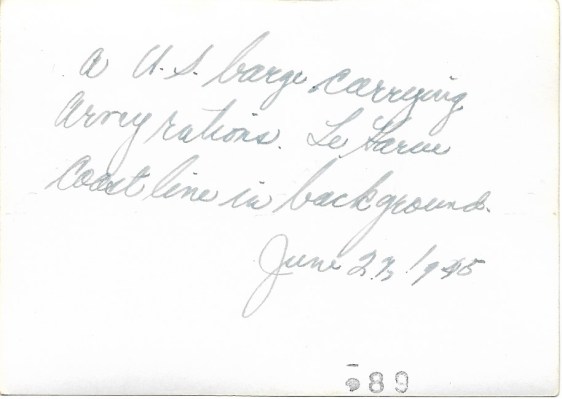 A U.S. barge carrying
Army rations. Le Harve
Coast line in background.
June 27, 1945
89